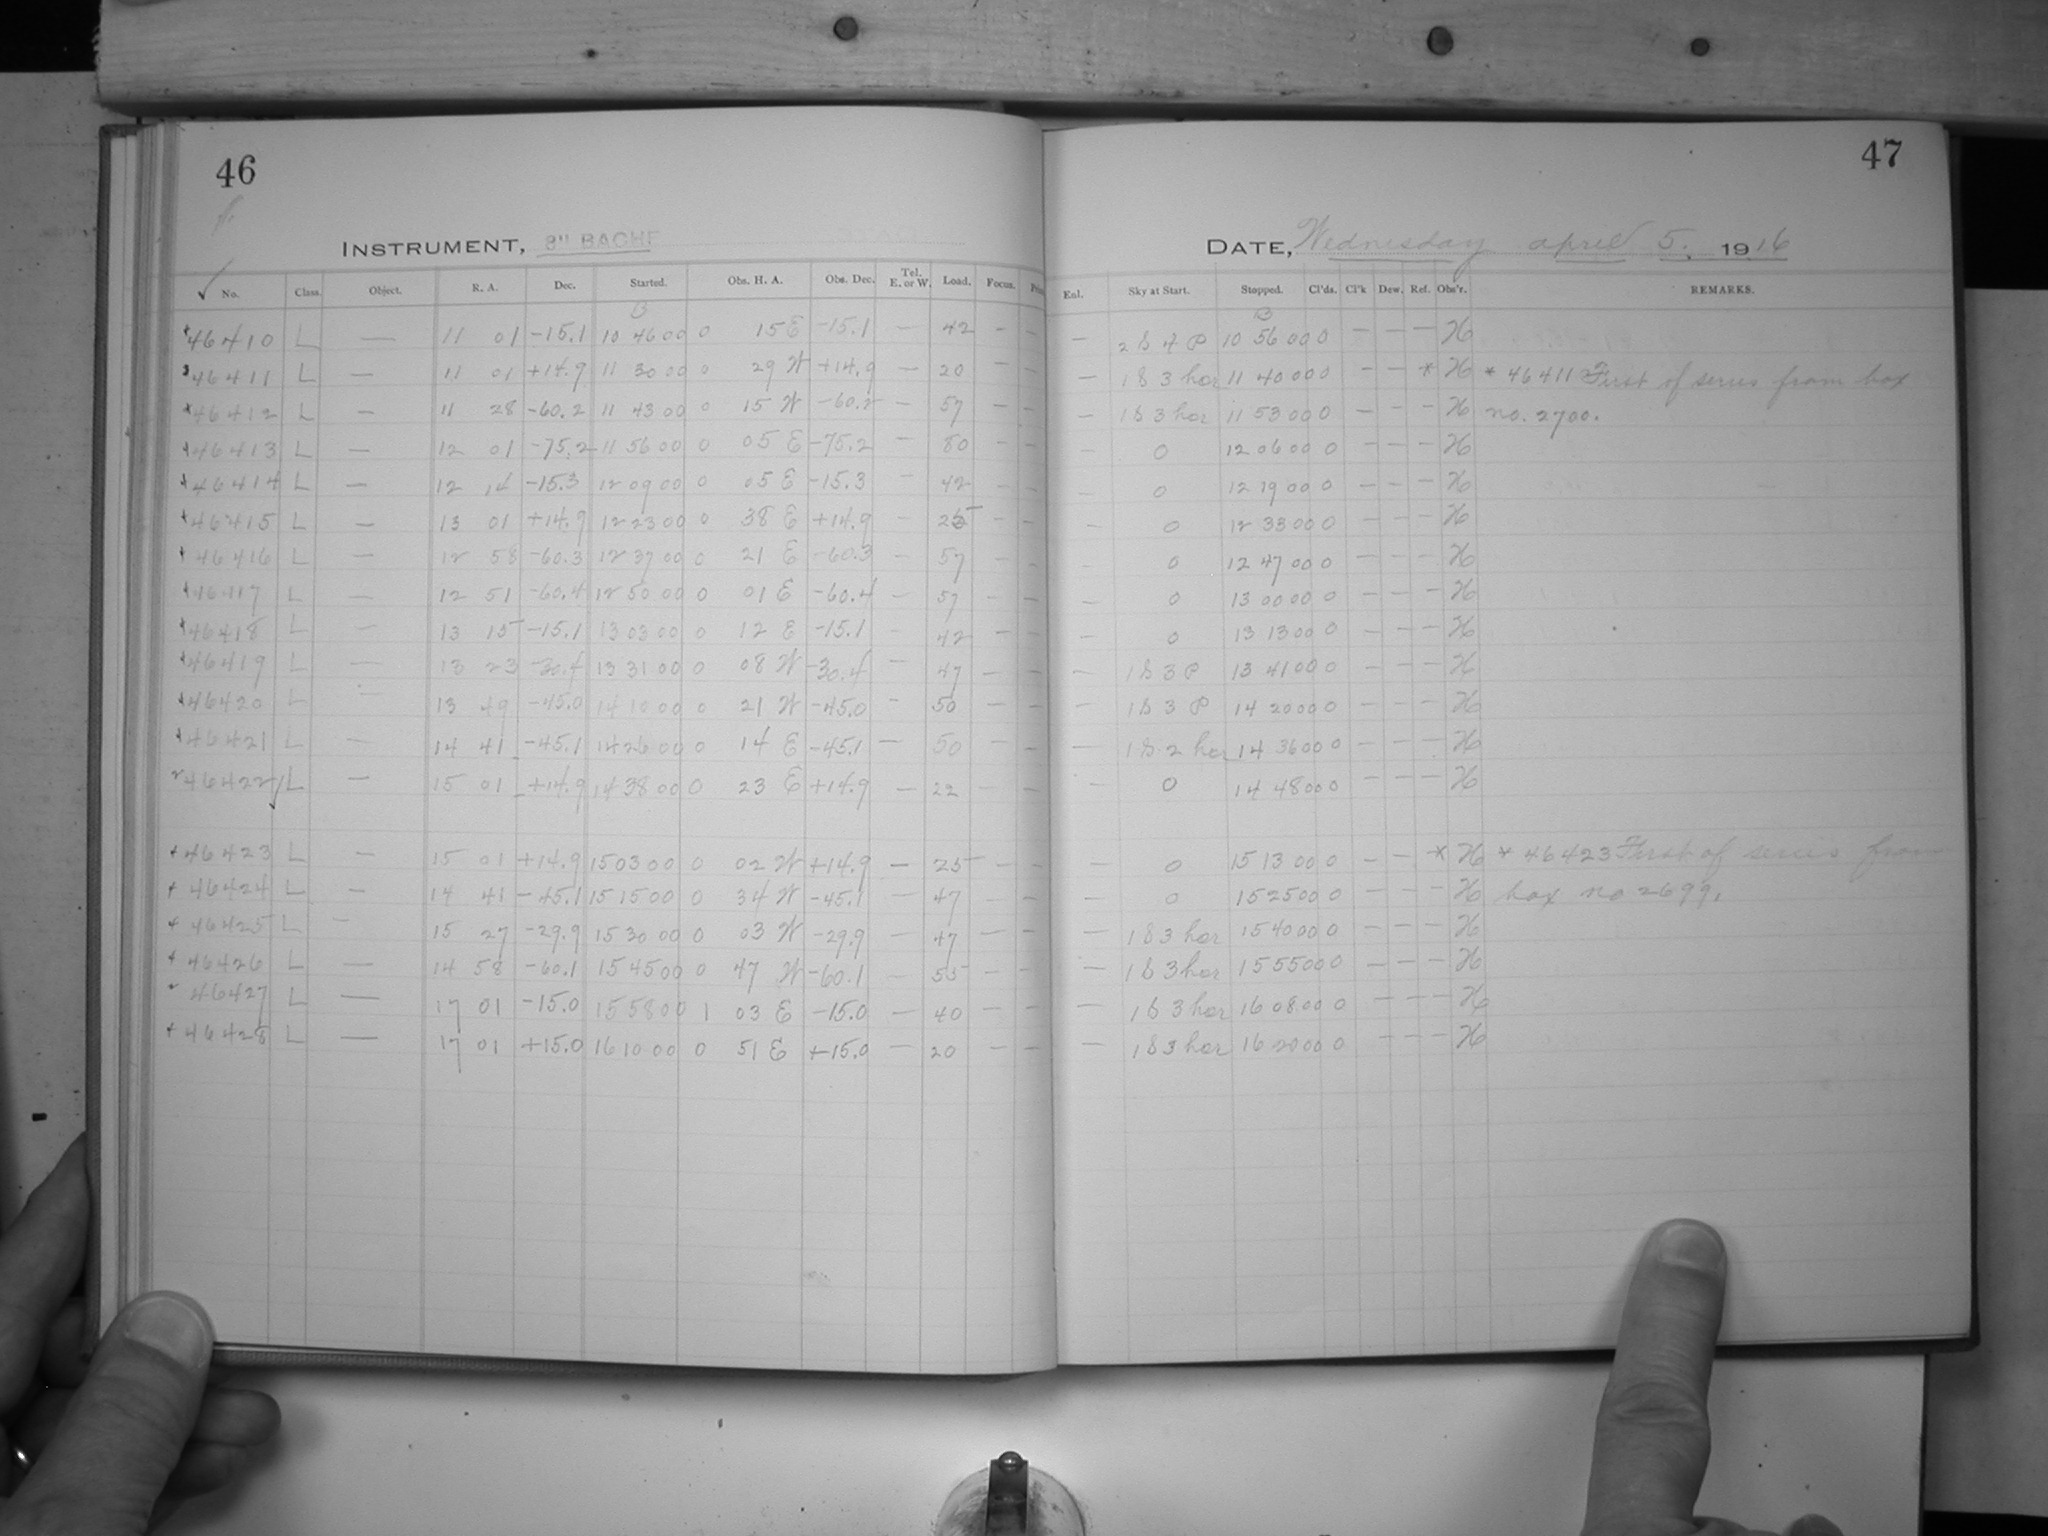 46
47
INSTRUMENT, 8" BACHE
DATE, Wednesday april 5. 1916
No. Class. Object. R. A. Dec. Started. Obs. H. A. Obs. Dec. Tel. E. or W. Load. Focus. Enl. Sky at Start. Stopped. Cl'ds. Cl'k Dew. Ref. Obs'r. REMARKS.
46410 L — 11 01 -15.1 10 46 00 0 15 E -15.1 — 42 — — — 2 S 4 P 10 56 00 0 — — — H
46411 L — 11 01 +14.9 11 30 00 0 29 W +14.9 — 20 — — — 1 S 3 hor 11 40 00 0 — — * H * 46411 First of series from box
46412 L — 11 28 -60.2 11 43 00 0 15 W -60.2 — 57 — — — 1 S 3 hor 11 53 00 0 — — — H no. 2700.
46413 L — 12 01 -75.2 11 56 00 0 05 E -75.2 — 80 — — — 0 12 06 00 0 — — — H
46414 L — 12 14 -15.3 12 09 00 0 05 E -15.3 — 42 — — — 0 12 19 00 0 — — — H
46415 L — 13 01 +14.9 12 23 00 0 38 E +14.9 — 25 — — — 0 12 33 00 0 — — — H
46416 L — 12 58 -60.3 12 37 00 0 21 E -60.3 — 57 — — — 0 12 47 00 0 — — — H
46417 L — 12 51 -60.4 12 50 00 0 01 E -60.4 — 57 — — — 0 13 00 00 0 — — — H
46418 L — 13 15 -15.1 13 03 00 0 12 E -15.1 — 42 — — — 0 13 13 00 0 — — — H
46419 L — 13 23 -30.4 13 31 00 0 08 W -30.4 — 47 — — — 1 S 3 P 13 41 00 0 — — — H
46420 L — 13 49 -45.0 14 10 00 0 21 W -45.0 — 50 — — — 1 S 3 P 14 20 00 0 — — — H
46421 L — 14 41 -45.1 14 26 00 0 14 E -45.1 — 50 — — — 1 S 2 hor 14 36 00 0 — — — H
46422 L — 15 01 +14.9 14 38 00 0 23 E +14.9 — 22 — — — 0 14 48 00 0 — — — H
46423 L — 15 01 +14.9 15 03 00 0 02 W +14.9 — 25 — — — 0 15 13 00 0 — — * H * 46423 First of series from
46424 L — 14 41 -45.1 15 15 00 0 34 W -45.1 — 47 — — — 0 15 25 00 0 — — — H box no 2699.
46425 L — 15 27 -29.9 15 30 00 0 03 W -29.9 — 47 — — — 1 S 3 hor 15 40 00 0 — — — H
46426 L — 14 58 -60.1 15 45 00 0 47 W -60.1 — 55 — — — 1 S 3 hor 15 55 00 0 — — — H
46427 L — 17 01 -15.0 15 58 00 1 03 E -15.0 — 40 — — — 1 S 3 hor 16 08 00 0 — — — H
46428 L — 17 01 +15.0 16 10 00 0 51 E +15.0 — 20 — — — 1 S 3 hor 16 20 00 0 — — — H